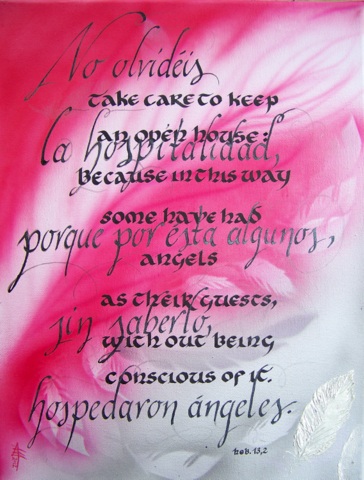 No olvidéis
take care to keep
an open house:
la hospitalidad,
because in this way
some have had
porque por ésta algunos,
angels
as their guests,
sin saberlo,
with out being
conscious of it.
hospedaron ángeles.
heb. 13,2